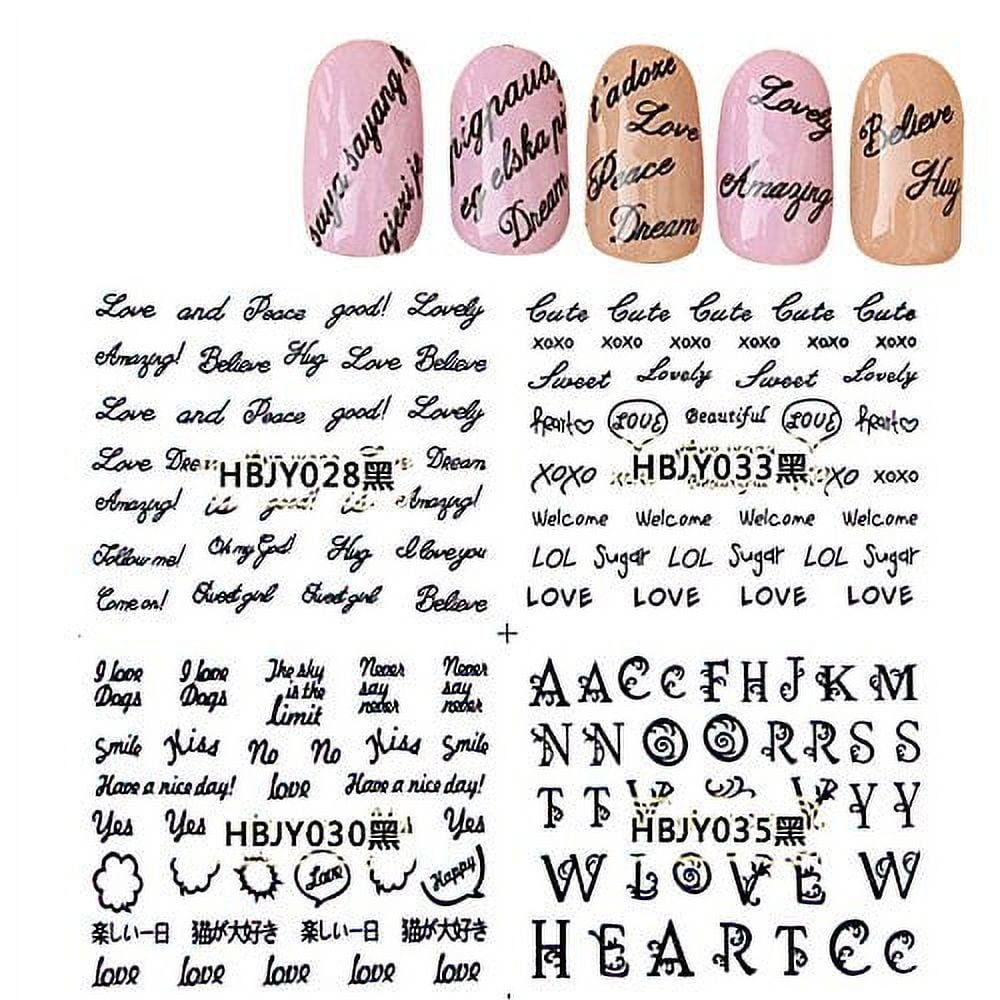 saya sayang
ajexi je
eg elska þi
Dream
t'adore
Love
Peace
Dream
Lovely
Amazing
Believe
Hug
Love and Peace good! Lovely
Amazing! Believe Hug Love Believe
Love and Peace good! Lovely
Love Dream
HBJY028黑
Amazing! is good! is Amazing!
Follow me! Oh my God! Hug I love you
Come on! Sweet girl Sweet girl Believe
Cute Cute Cute Cute Cute
xoxo xoxo xoxo xoxo xoxo xoxo
Sweet Lovely Sweet Lovely
heart LOVE Beautiful LOVE heart
HBJY033黑
XOXO XOXO
Welcome Welcome Welcome Welcome
LOL Sugar LOL Sugar LOL Sugar
LOVE LOVE LOVE LOVE
I love Dogs I love Dogs The sky is the limit Never say never Never say never
Smile Kiss No No Kiss Smile
Have a nice day! love Have a nice day!
Yes Yes Yes
HBJY030黑
Love Happy
楽しい一日 猫が大好き 楽しい一日 猫が大好き
love love love love love
A A C C F H J K M
N N O O R R S S
T T Y Y
HBJY035黑
W L O V E W
H E A R T C C